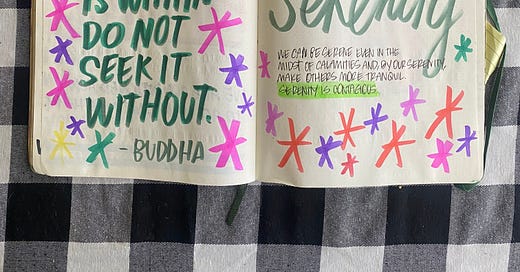 IS WITHIN
DO NOT
SEEK IT
WITHOUT.
- BUDDHA
Serenity
WE CAN BE SERENE EVEN IN THE
MIDST OF CALAMITIES AND, BY OUR SERENITY,
MAKE OTHERS MORE TRANQUIL.
SERENITY IS CONTAGIOUS.